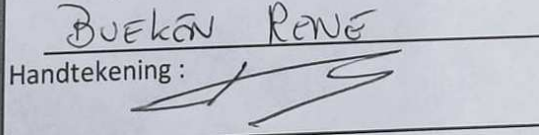 BUEKEN RENÉ
Handtekening :